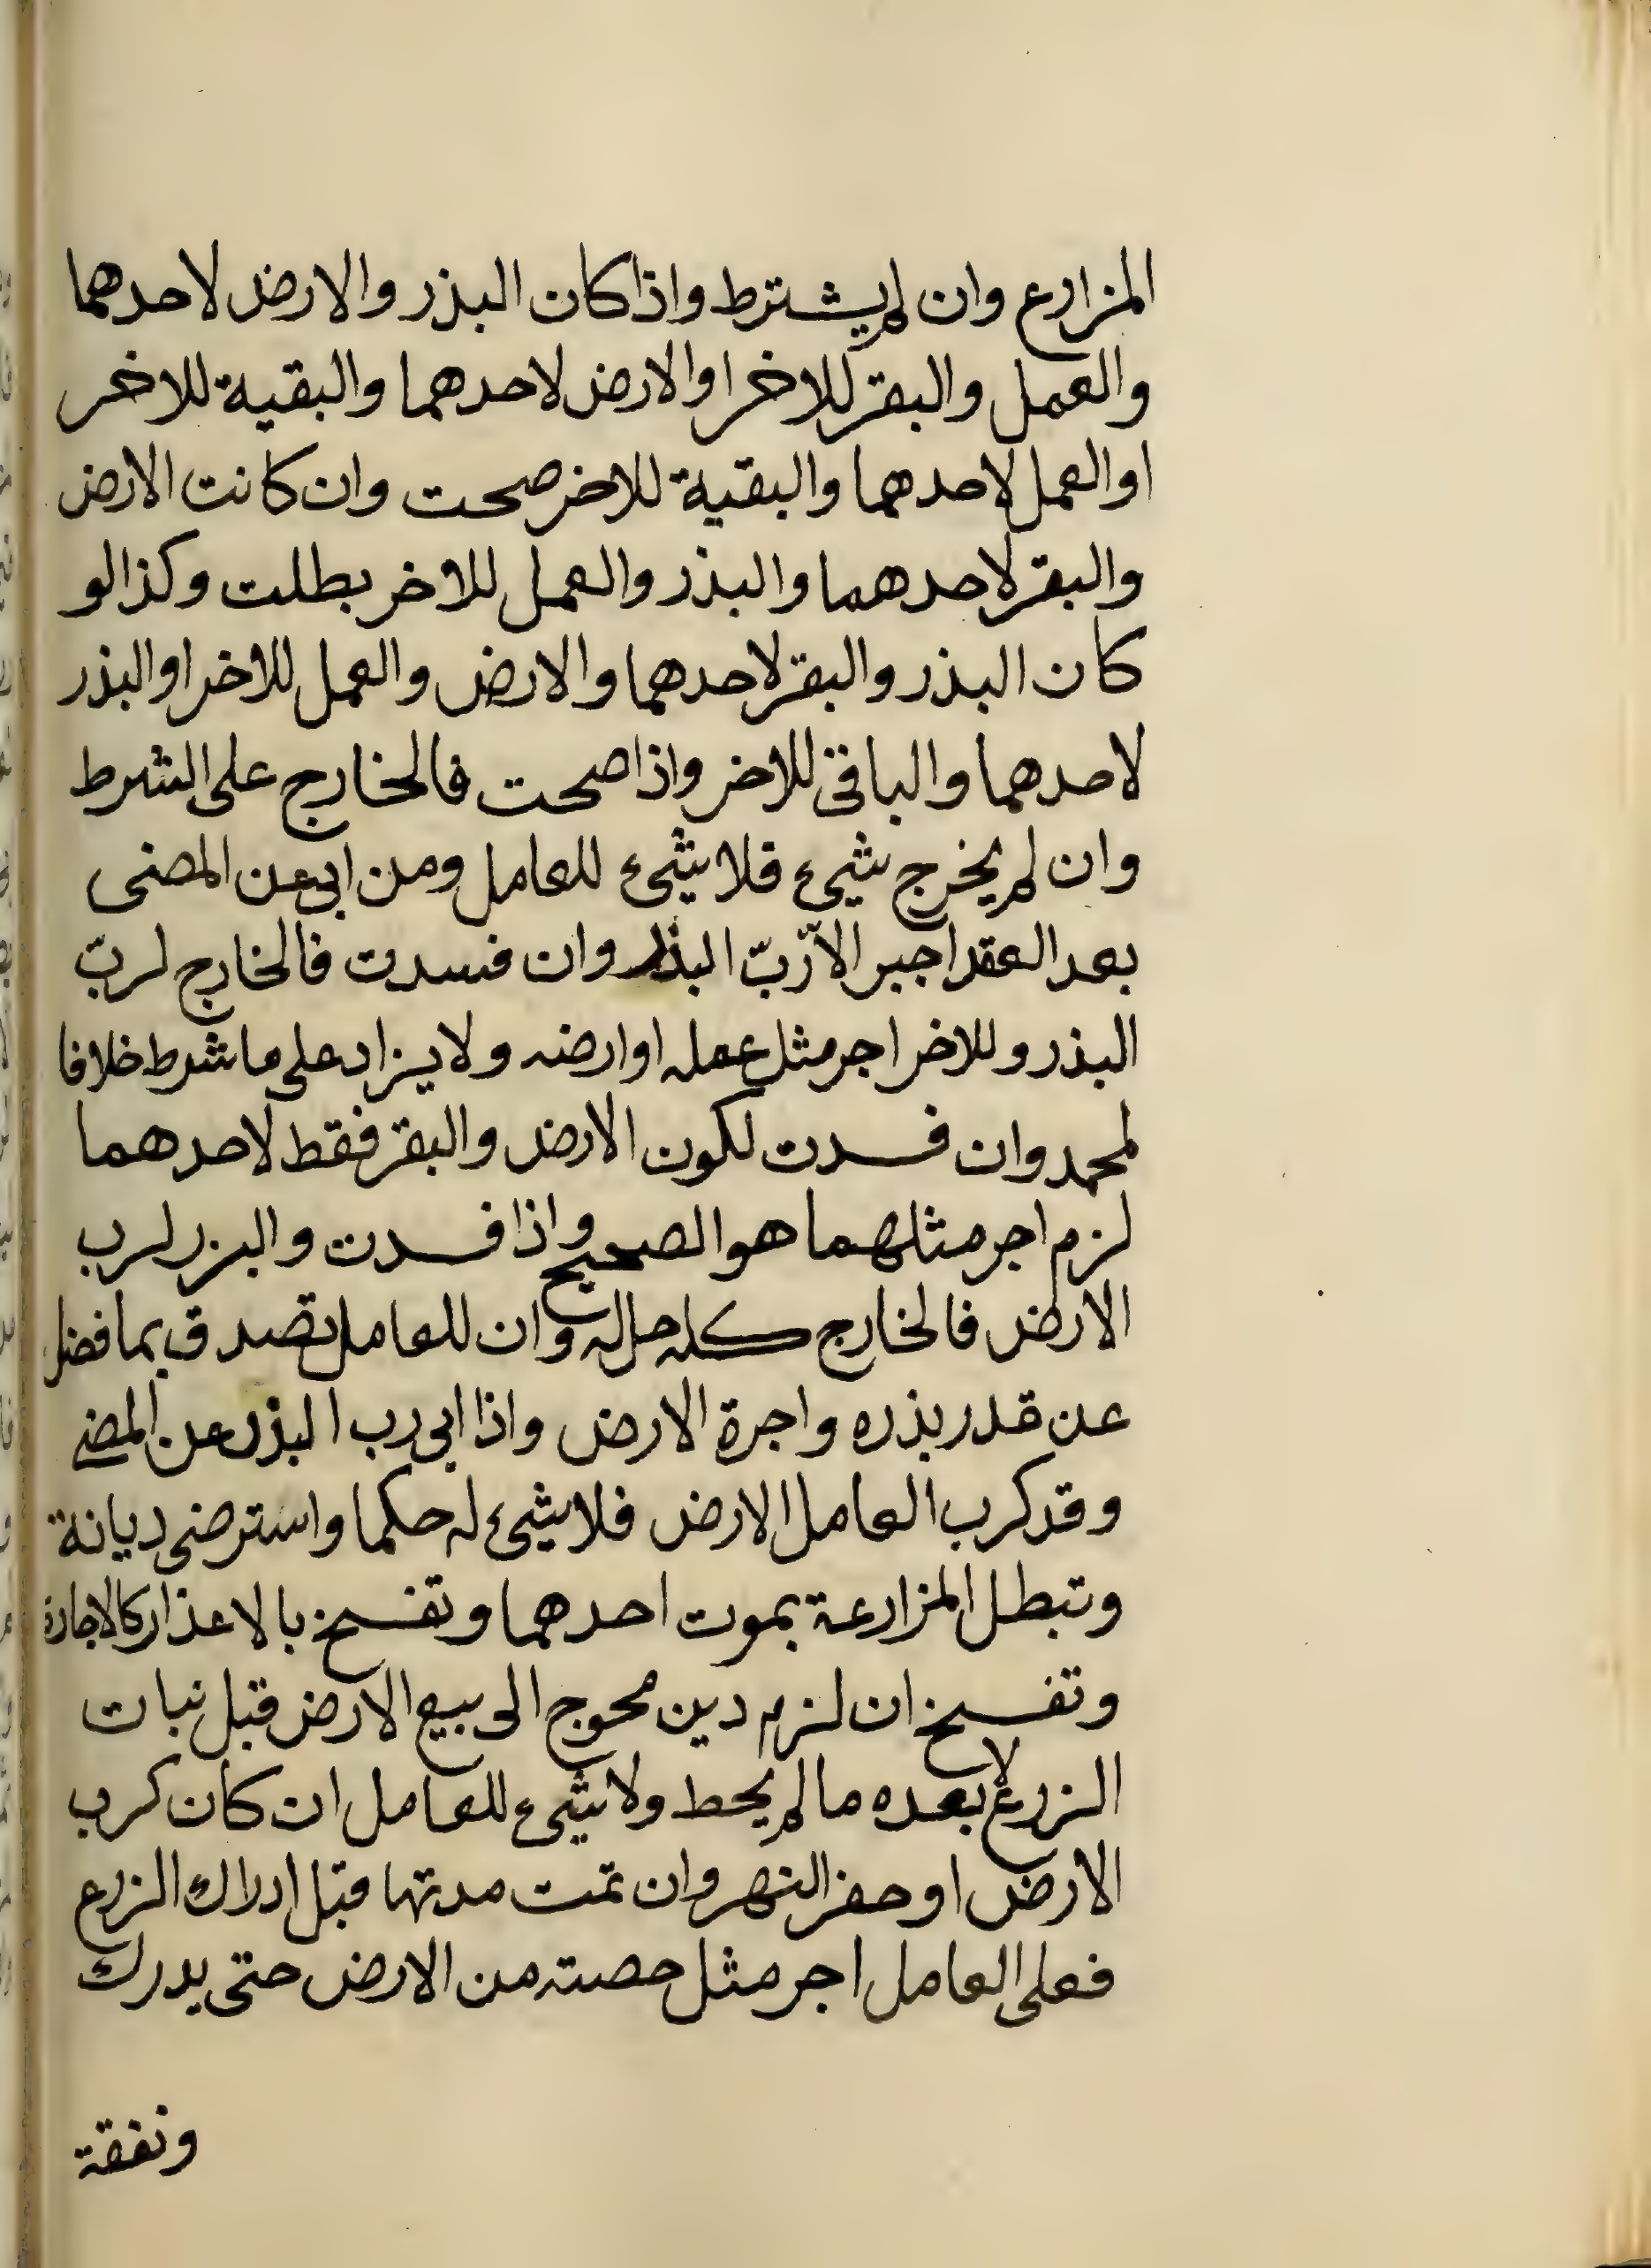 المزارع وان لم يشترط واذا كان البذر والارض لاحدهما
والعمل والبقر للاخر او الارض لاحدهما والبقية للاخر
او العمل لاحدهما والبقية للاخر صحت وان كانت الارض
والبقر لاحدهما والبذر والعمل للاخر بطلت وكذا لو
كان البذر والبقر لاحدهما والارض والعمل للاخر او البذر
لاحدهما والباقى للاخر واذا صحت فالخارج على الشرط
وان لم يخرج شيء فلا شيء للعامل ومن ابى عن المضى
بعد العقد اجبر الا ربّ البذر وان فسدت فالخارج لربّ
البذر وللاخر اجر مثل عمله او ارضه ولا يزاد على ما شرط خلافا
لمحمد وان فسدت لكون الارض والبقر فقط لاحدهما
لزم اجر مثلهما هو الصحيح واذا فسدت والبزر لرب
الارض فالخارج كله حل له وان للعامل تصدق بما فضل
عن قدر بذره واجرة الارض واذا ابى رب البذر عن المضى
وقد كرب العامل الارض فلا شيء له حكما واسترضى ديانة
وتبطل المزارعة بموت احدهما وتفسخ بالاعذار كالاجارة
وتفسخ ان لزم دين محوج الى بيع الارض قبل نبات
الزرع لا بعده ما لم يحط ولا شيء للعامل ان كان كرب
الارض او حفر النهر وان تمت مدتها قبل ادراك الزرع
فعلى العامل اجر مثل حصته من الارض حتى يدرك
ونفقة